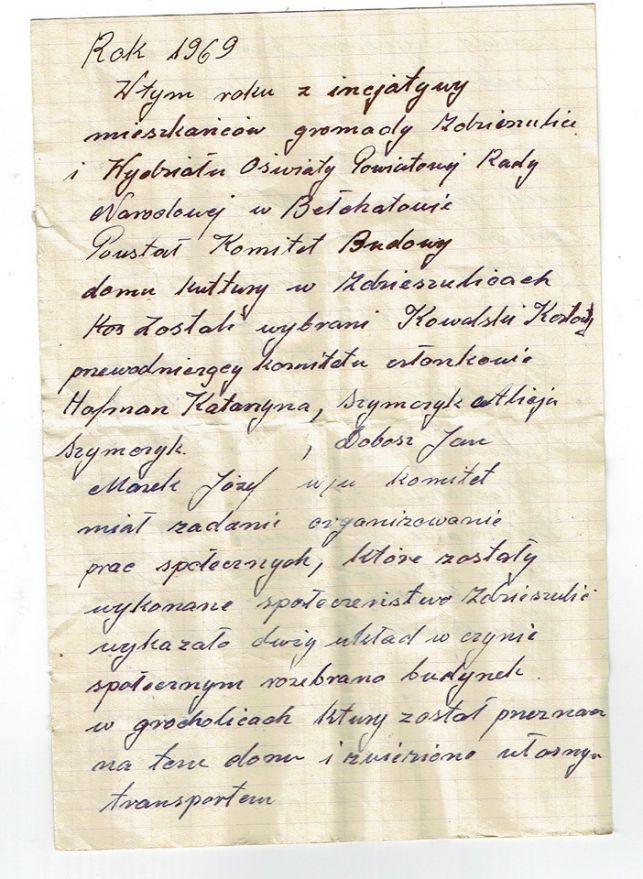 Rok 1969
Wtym roku z incjatywy
mieszkańców gromady Zdzieszulice
i Wydziału Oświaty Powiatowej Rady
Narodowej w Bełchatowie
Powstał Komitet Budowy
domu kultury w Zdzieszulicach
Zostali wybrani Kowalski
przewodniczący komitetu członkowie
Hofman Katarzyna, Szymczyk Alicja
Szymczyk , Dobosz Jan
Marek Józef w/w komitet
miał zadanie organizowanie
prac społecznych, które zostały
wykonane społeczeństwo Zdzieszulic
wykazało duży wkład w czynie
społecznym rozebrano budynek
w grocholicach ktury został
na ten dom i zwieziono własnym
transportem